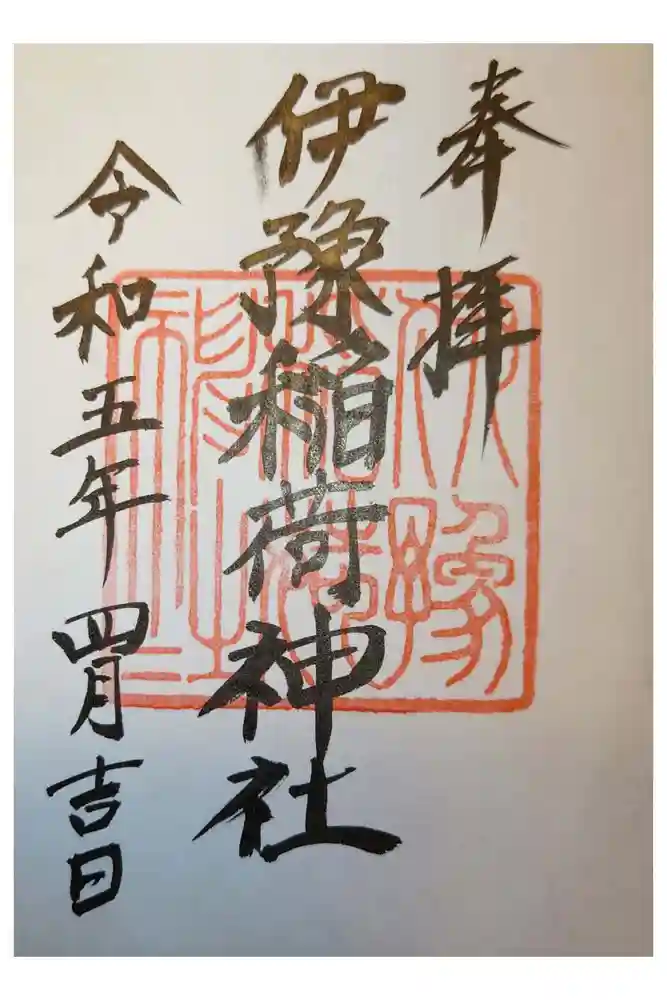 奉拝
伊豫稲荷神社
令和五年四月吉日
伊豫
稲荷
神社